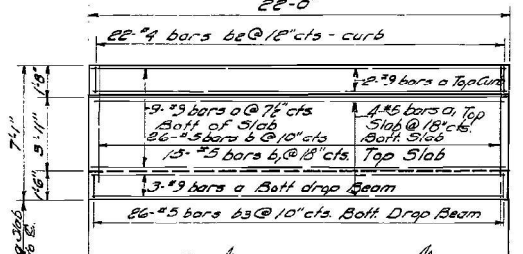 22'-0"
22-#4 bars b2@12"cts - curb
2-#9 bars a Top Curb
9-#9 bars a @ 7½"cts
Bott of Slab
26-#5 bars b @10"cts
Bott. Slab
4-#5 bars a, Top
Slab @18"cts.
15-#5 bars b, @18"cts. Top Slab
3-#9 bars a Bott drop Beam
26-#5 bars b3@10"cts. Bott. Drop Beam
7'-1"
1'-8"
3'-11"
1'-6"
Slab